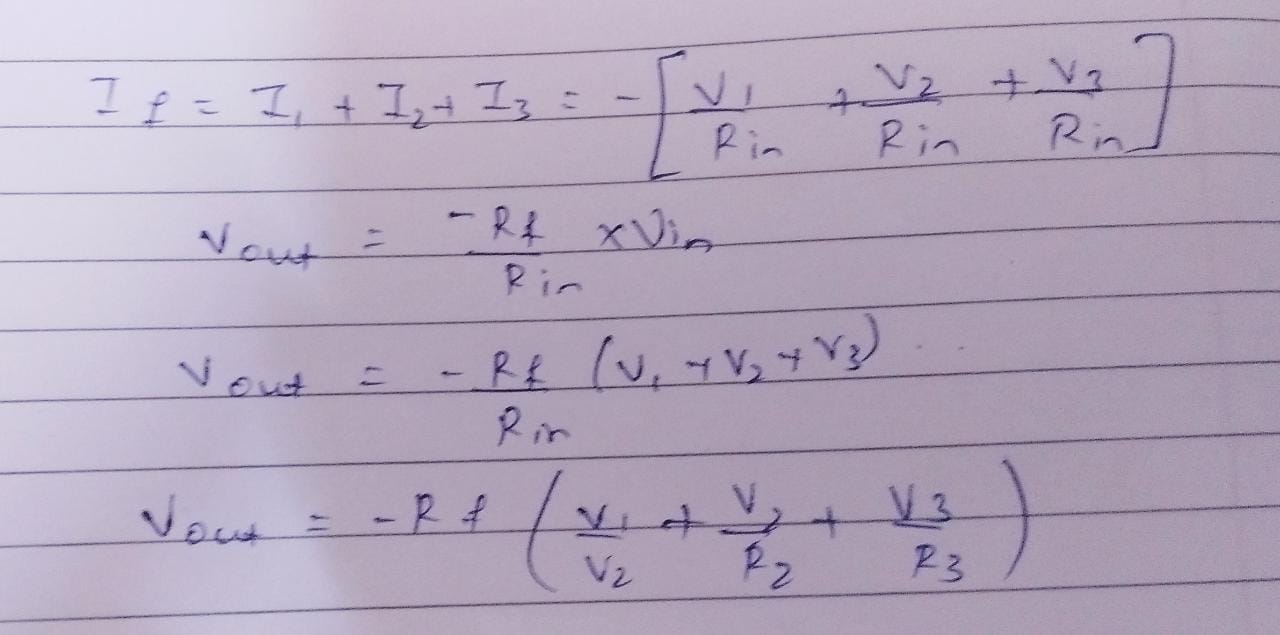 I f = I₁ + I₂ + I₃ = - [ V1/Rin + V2/Rin + V3/Rin ]
Vout = -Rf/Rin × Vin
Vout = - Rf/Rin (V₁ + V₂ + V₃) ..
Vout = - Rf ( V₁/V₂ + V₂/R₂ + V3/R3 )